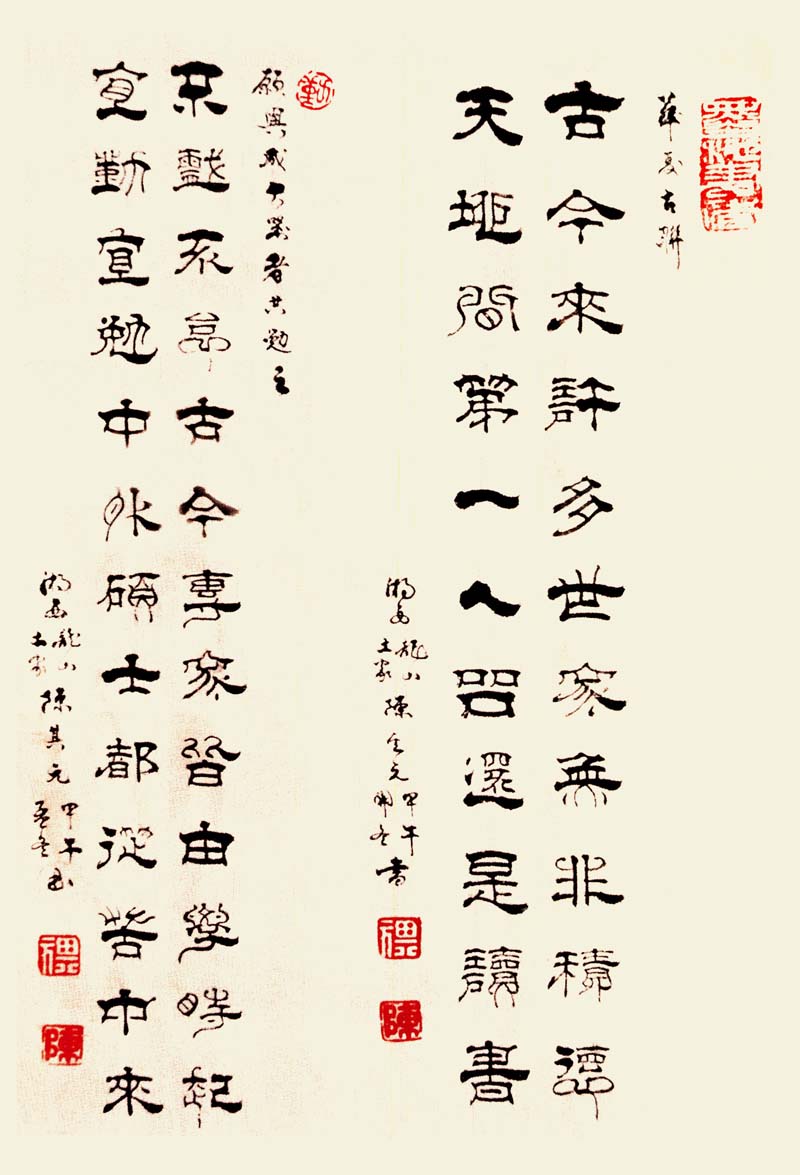 華夏古聯
古今來許多世家無非積德
天地間第一人品還是讀書
湘西龍山土家陳其元甲午開冬書
陳
勤
願與成大業者共勉之
古今專家皆由學時起
宜勤宜勉中外碩士都從苦中來
湘西龍山土家陳其元甲午孟冬書
陳